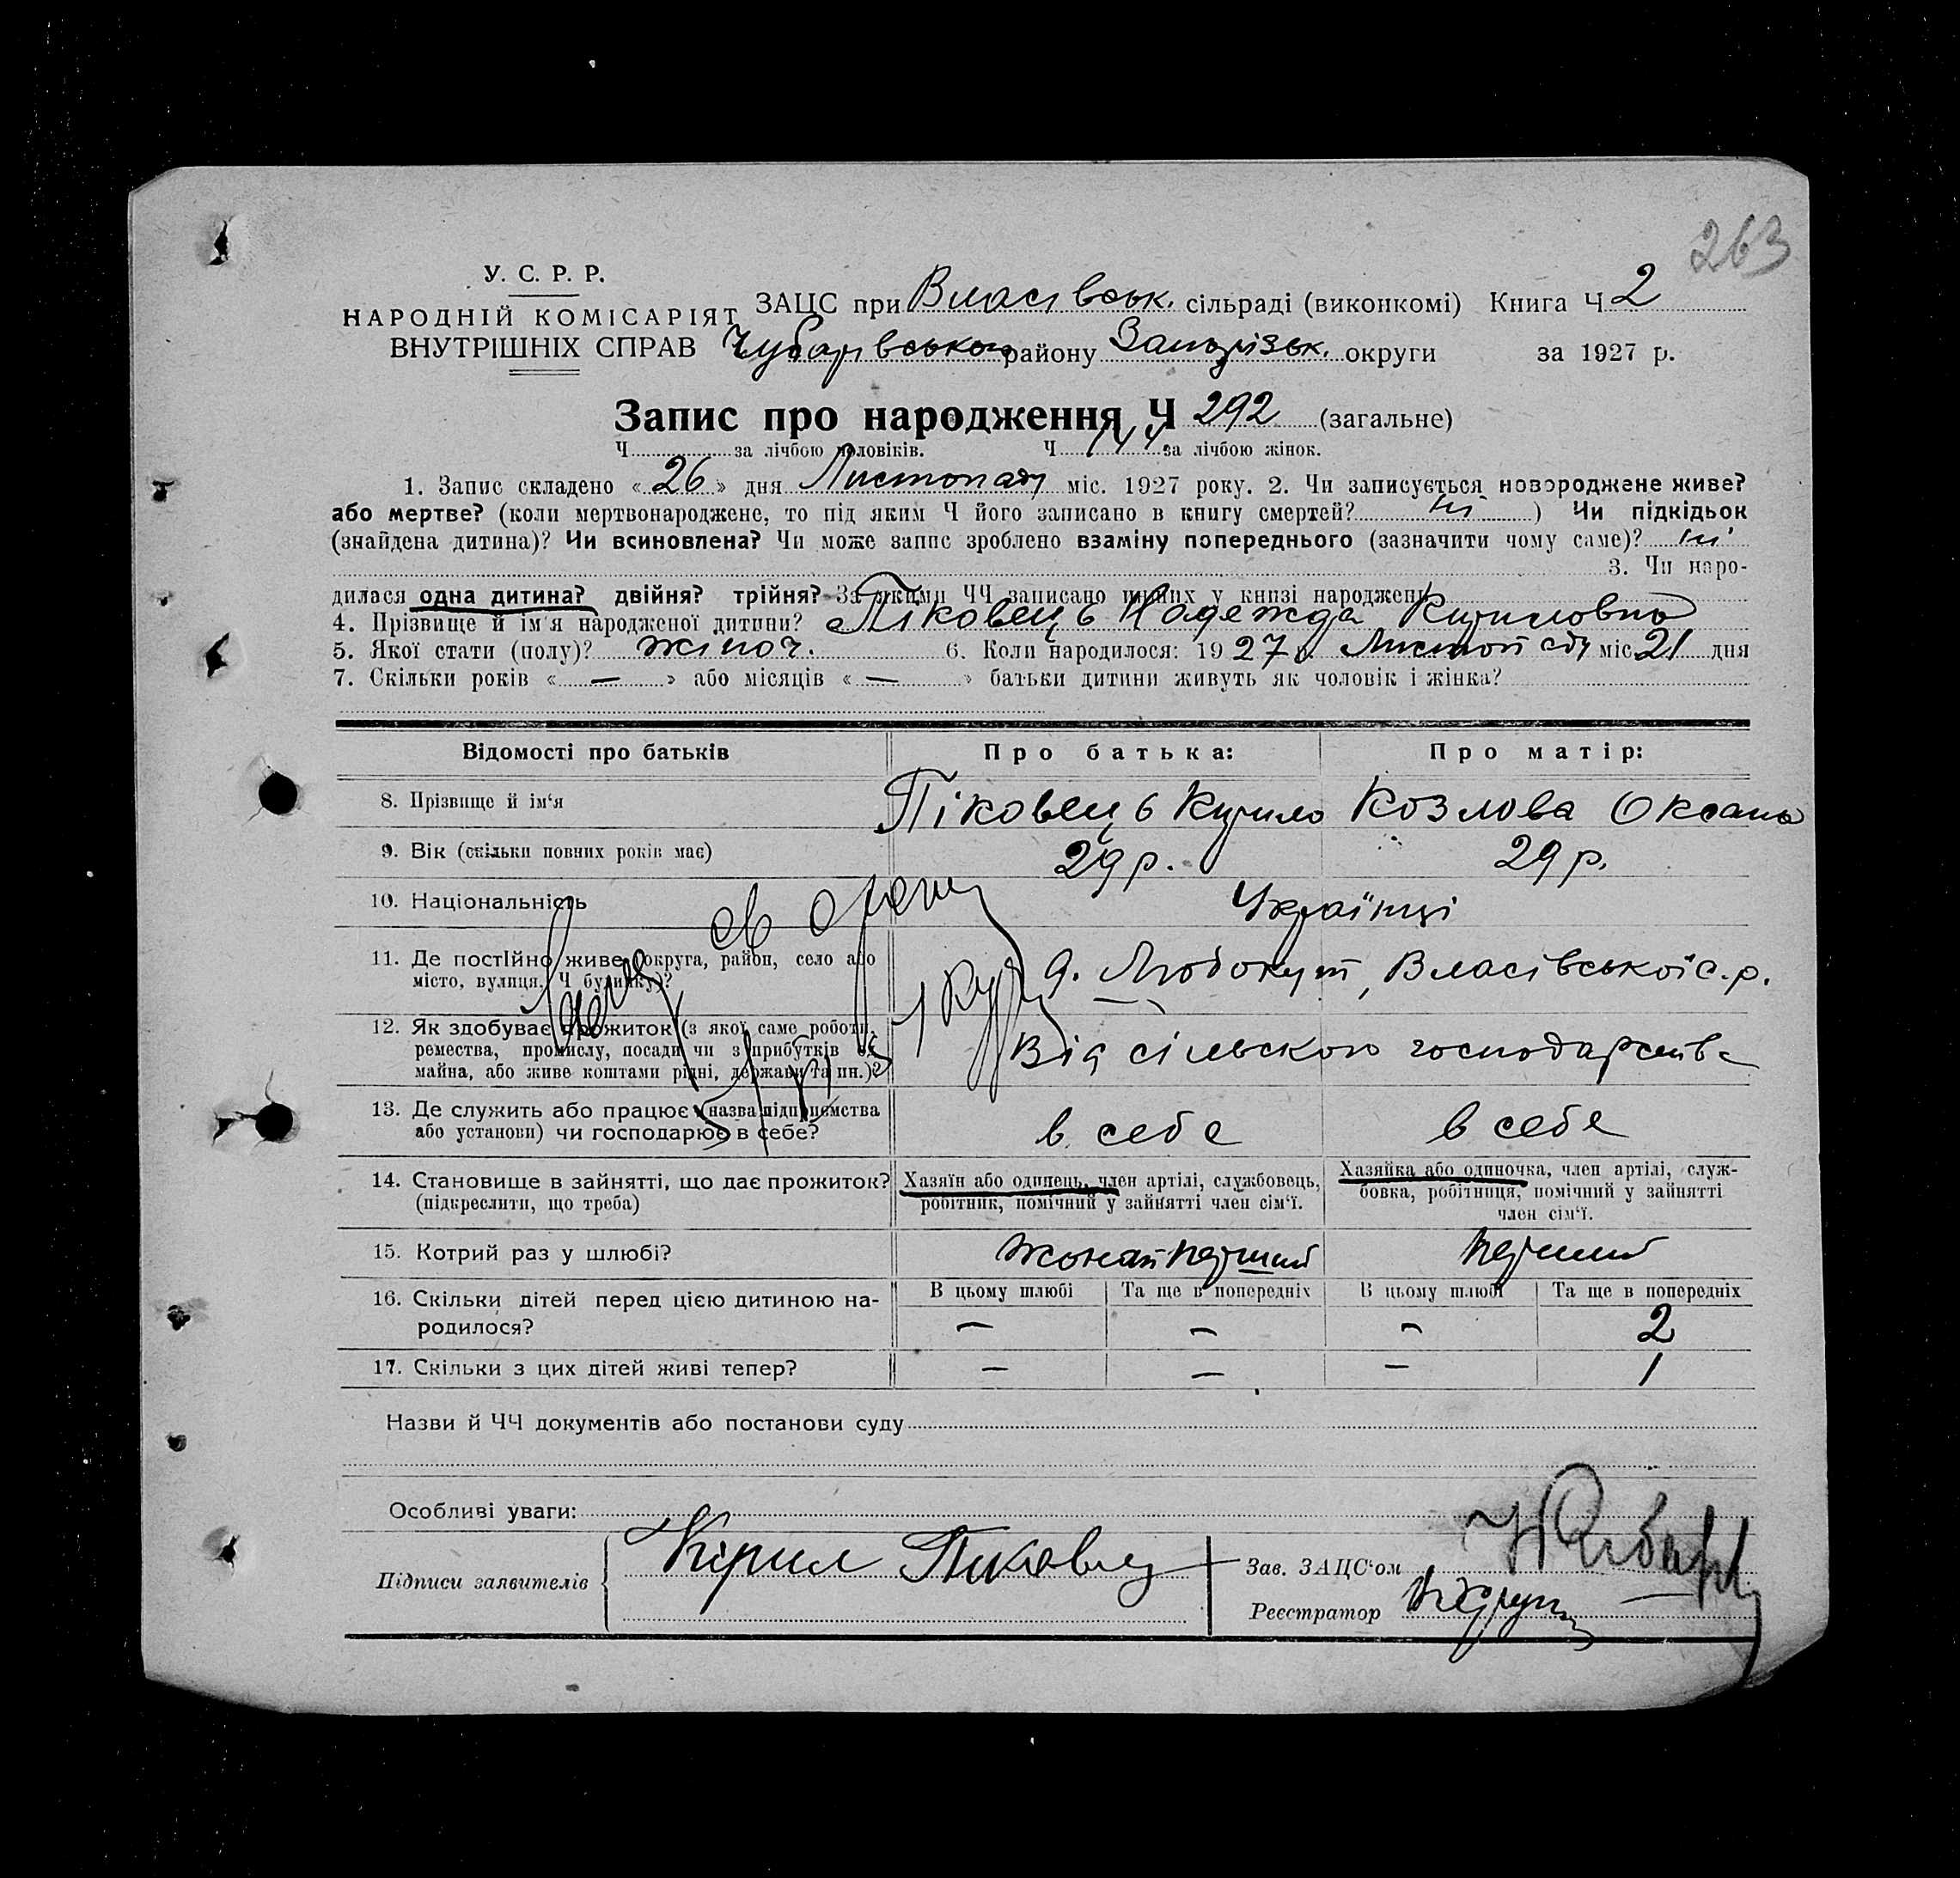 263
У. С. Р. Р.
НАРОДНІЙ КОМІСАРІЯТ
ВНУТРІШНІХ СПРАВ
ЗАЦС при Власівськ. сільраді (виконкомі) Книга Ч 2
Чубарівського району Запорізьк. округи за 1927 р.
Запис про народження Ч 292 (загальне)
Ч за лічбою чоловіків. Ч 144 за лічбою жінок.
1. Запис складено « 26 » дня Листопаду міс. 1927 року. 2. Чи записується новороджене живе?
або мертве? (коли мертвонароджене, то під яким Ч його записано в книгу смертей? ні ) Чи підкідьок
(знайдена дитина)? Чи всиновлена? Чи може запис зроблено взаміну попереднього (зазначити чому саме)? ні
3. Чи наро-
дилася одна дитина? двійня? трійня? За якими ЧЧ записано инших у книзі народжень
4. Прізвище й ім'я народженої дитини? Піковець Надежда Кириловна
5. Якої стати (полу)? жіноч. 6. Коли народилося: 1927 р. Листопаду міс. 21 дня
7. Скільки років « — » або місяців « — » батьки дитини живуть як чоловік і жінка?
Відомості про батьків Про батька: Про матір:
8. Прізвище й ім'я Піковець Кирило Козлова Оксана
9. Вік (скільки повних років має) 29 р. 29 р.
10. Національність Українці
11. Де постійно живе (округа, район, село або
місто, вулиця, Ч будинку)? Любокут, Власівської с.р.
12. Як здобуває прожиток (з якої саме роботи,
ремества, промислу, посади чи з прибутків од
майна, або живе коштами рідні, держави та ин.)? Від сільского господарства
13. Де служить або працює (назва підприємства
або установи) чи господарює в себе? в себе в себе
14. Становище в зайнятті, що дає прожиток?
(підкреслити, що треба)
Хазяїн або одинець, член артілі, службовець,
робітник, помічний у зайнятті член сім'ї.
Хазяйка або одиночка, член артілі, служ-
бовка, робітниця, помічний у зайнятті
член сім'ї.
15. Котрий раз у шлюбі? жонат перший перший
В цьому шлюбі Та ще в попередніх В цьому шлюбі Та ще в попередніх
16. Скільки дітей перед цією дитиною на-
родилося? — — — 2
17. Скільки з цих дітей живі тепер? — — — 1
Назви й ЧЧ документів або постанови суду
Особливі уваги:
Підписи заявителів Кірил Піковец
Зав. ЗАЦС'ом
Реєстратор